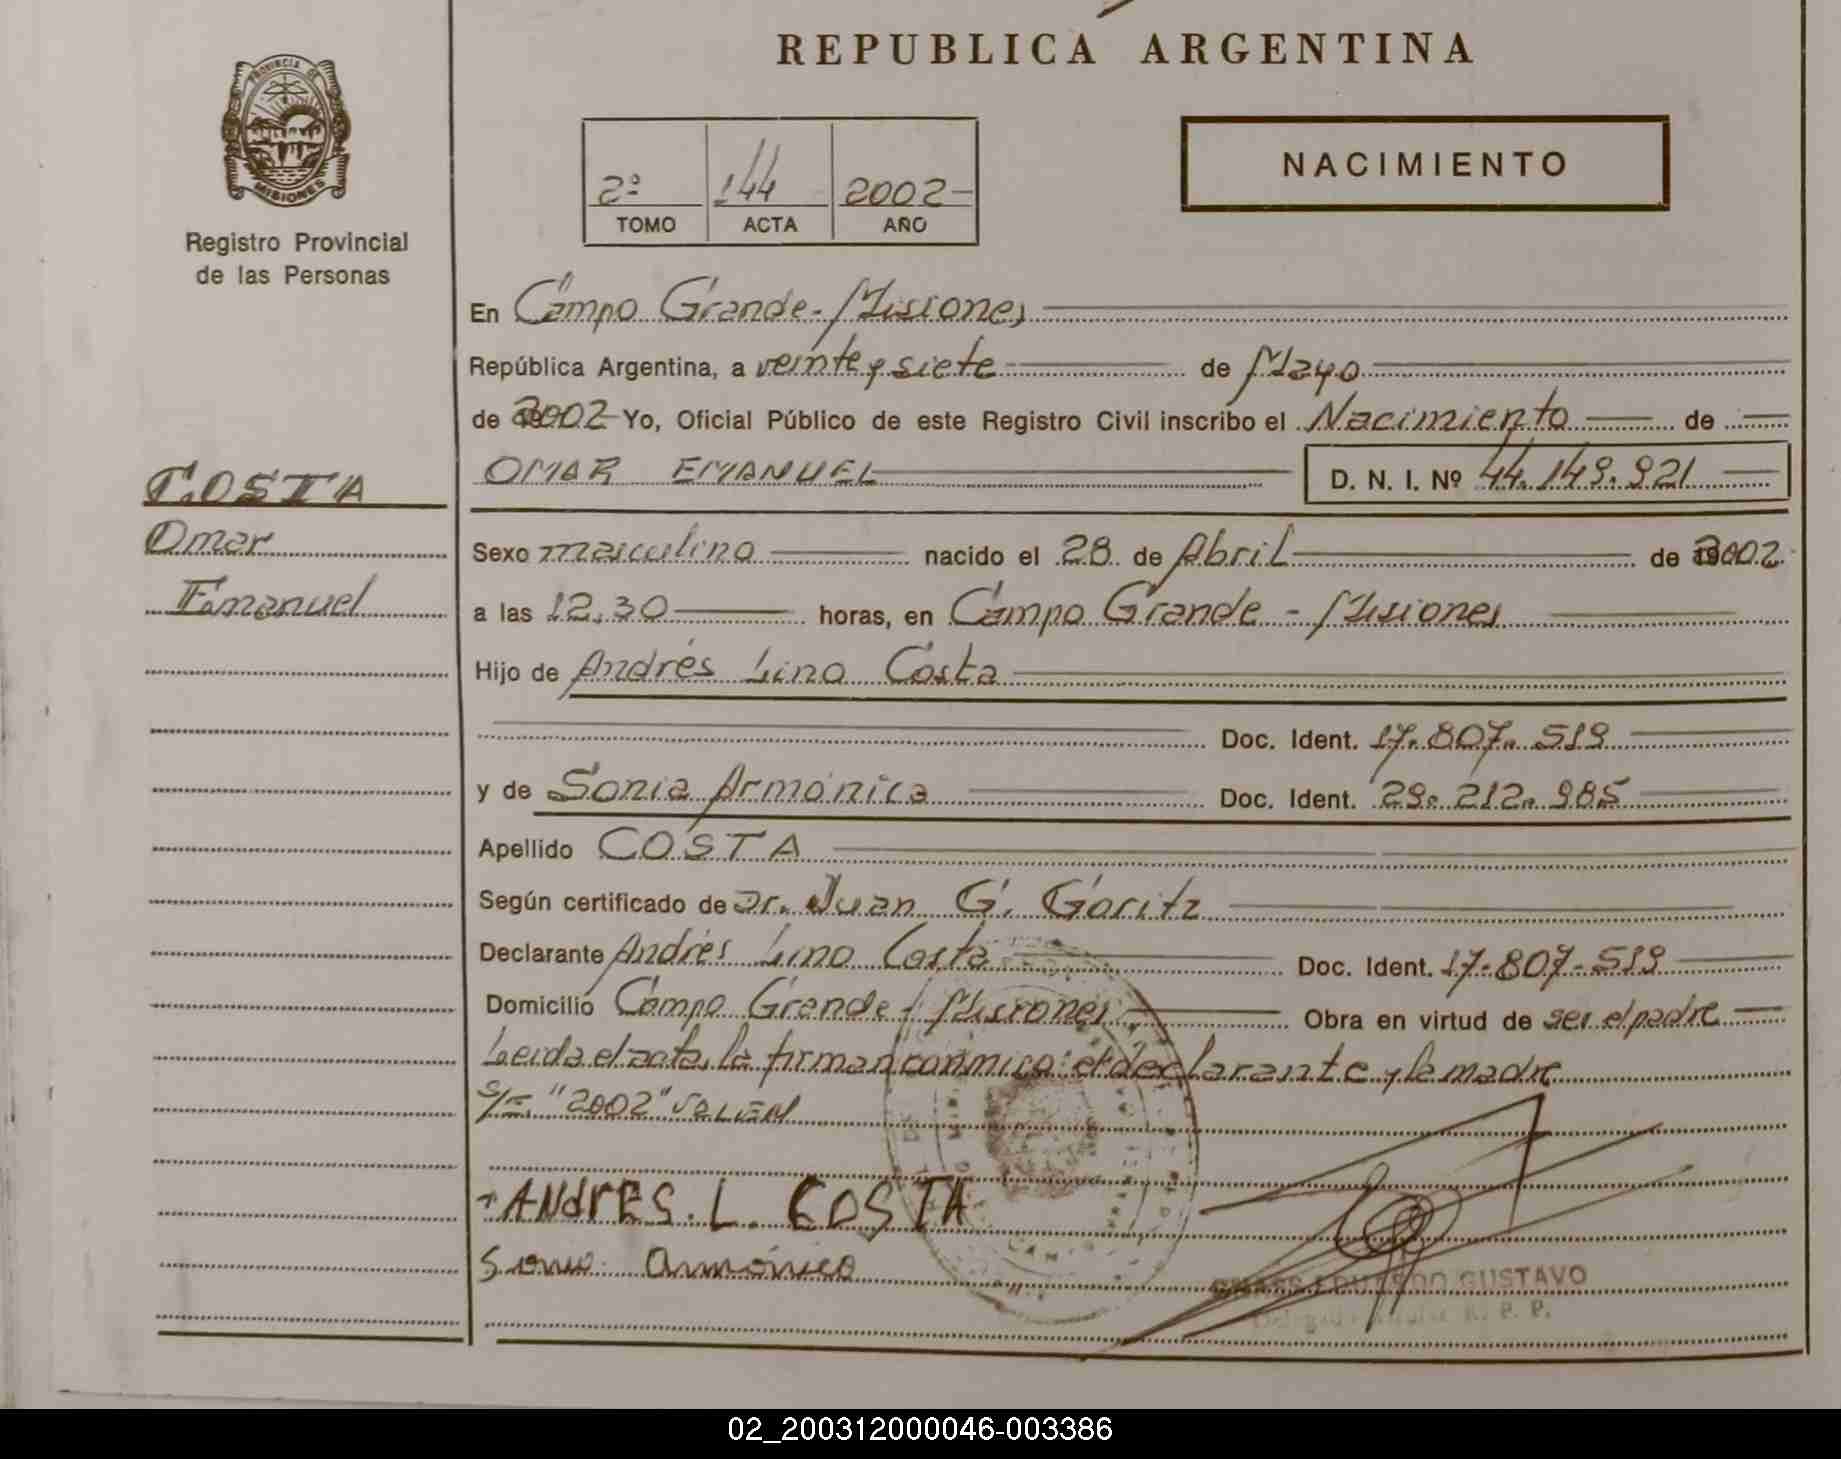 REPUBLICA ARGENTINA
PROVINCIA DE
MISIONES
Registro Provincial
de las Personas
2º 144 2002
TOMO ACTA AÑO
NACIMIENTO
En Campo Grande - Misiones
República Argentina, a veinte y siete de Mayo
de 2002 Yo, Oficial Público de este Registro Civil inscribo el Nacimiento de
OMAR EMANUEL D. N. I. Nº 44.149.921
COSTA
Omar
Emanuel
Sexo masculino nacido el 28 de Abril de 2002
a las 12.30 horas, en Campo Grande - Misiones
Hijo de Andrés Lino Costa
Doc. Ident. 17.807.519
y de Sonia Armónica Doc. Ident. 29.212.985
Apellido COSTA
Según certificado de Dr. Juan G. Goritz
Declarante Andrés Lino Costa Doc. Ident. 17-807-519
Domicilio Campo Grande - Misiones Obra en virtud de ser el padre
Leida el acta, la firman conmigo: el declarante y la madre
S/E. "2002" VALEN
ANdrES. L. COSTA
Sonia Armónica
EDUARDO GUSTAVO
R. P. P.
02_200312000046-003386